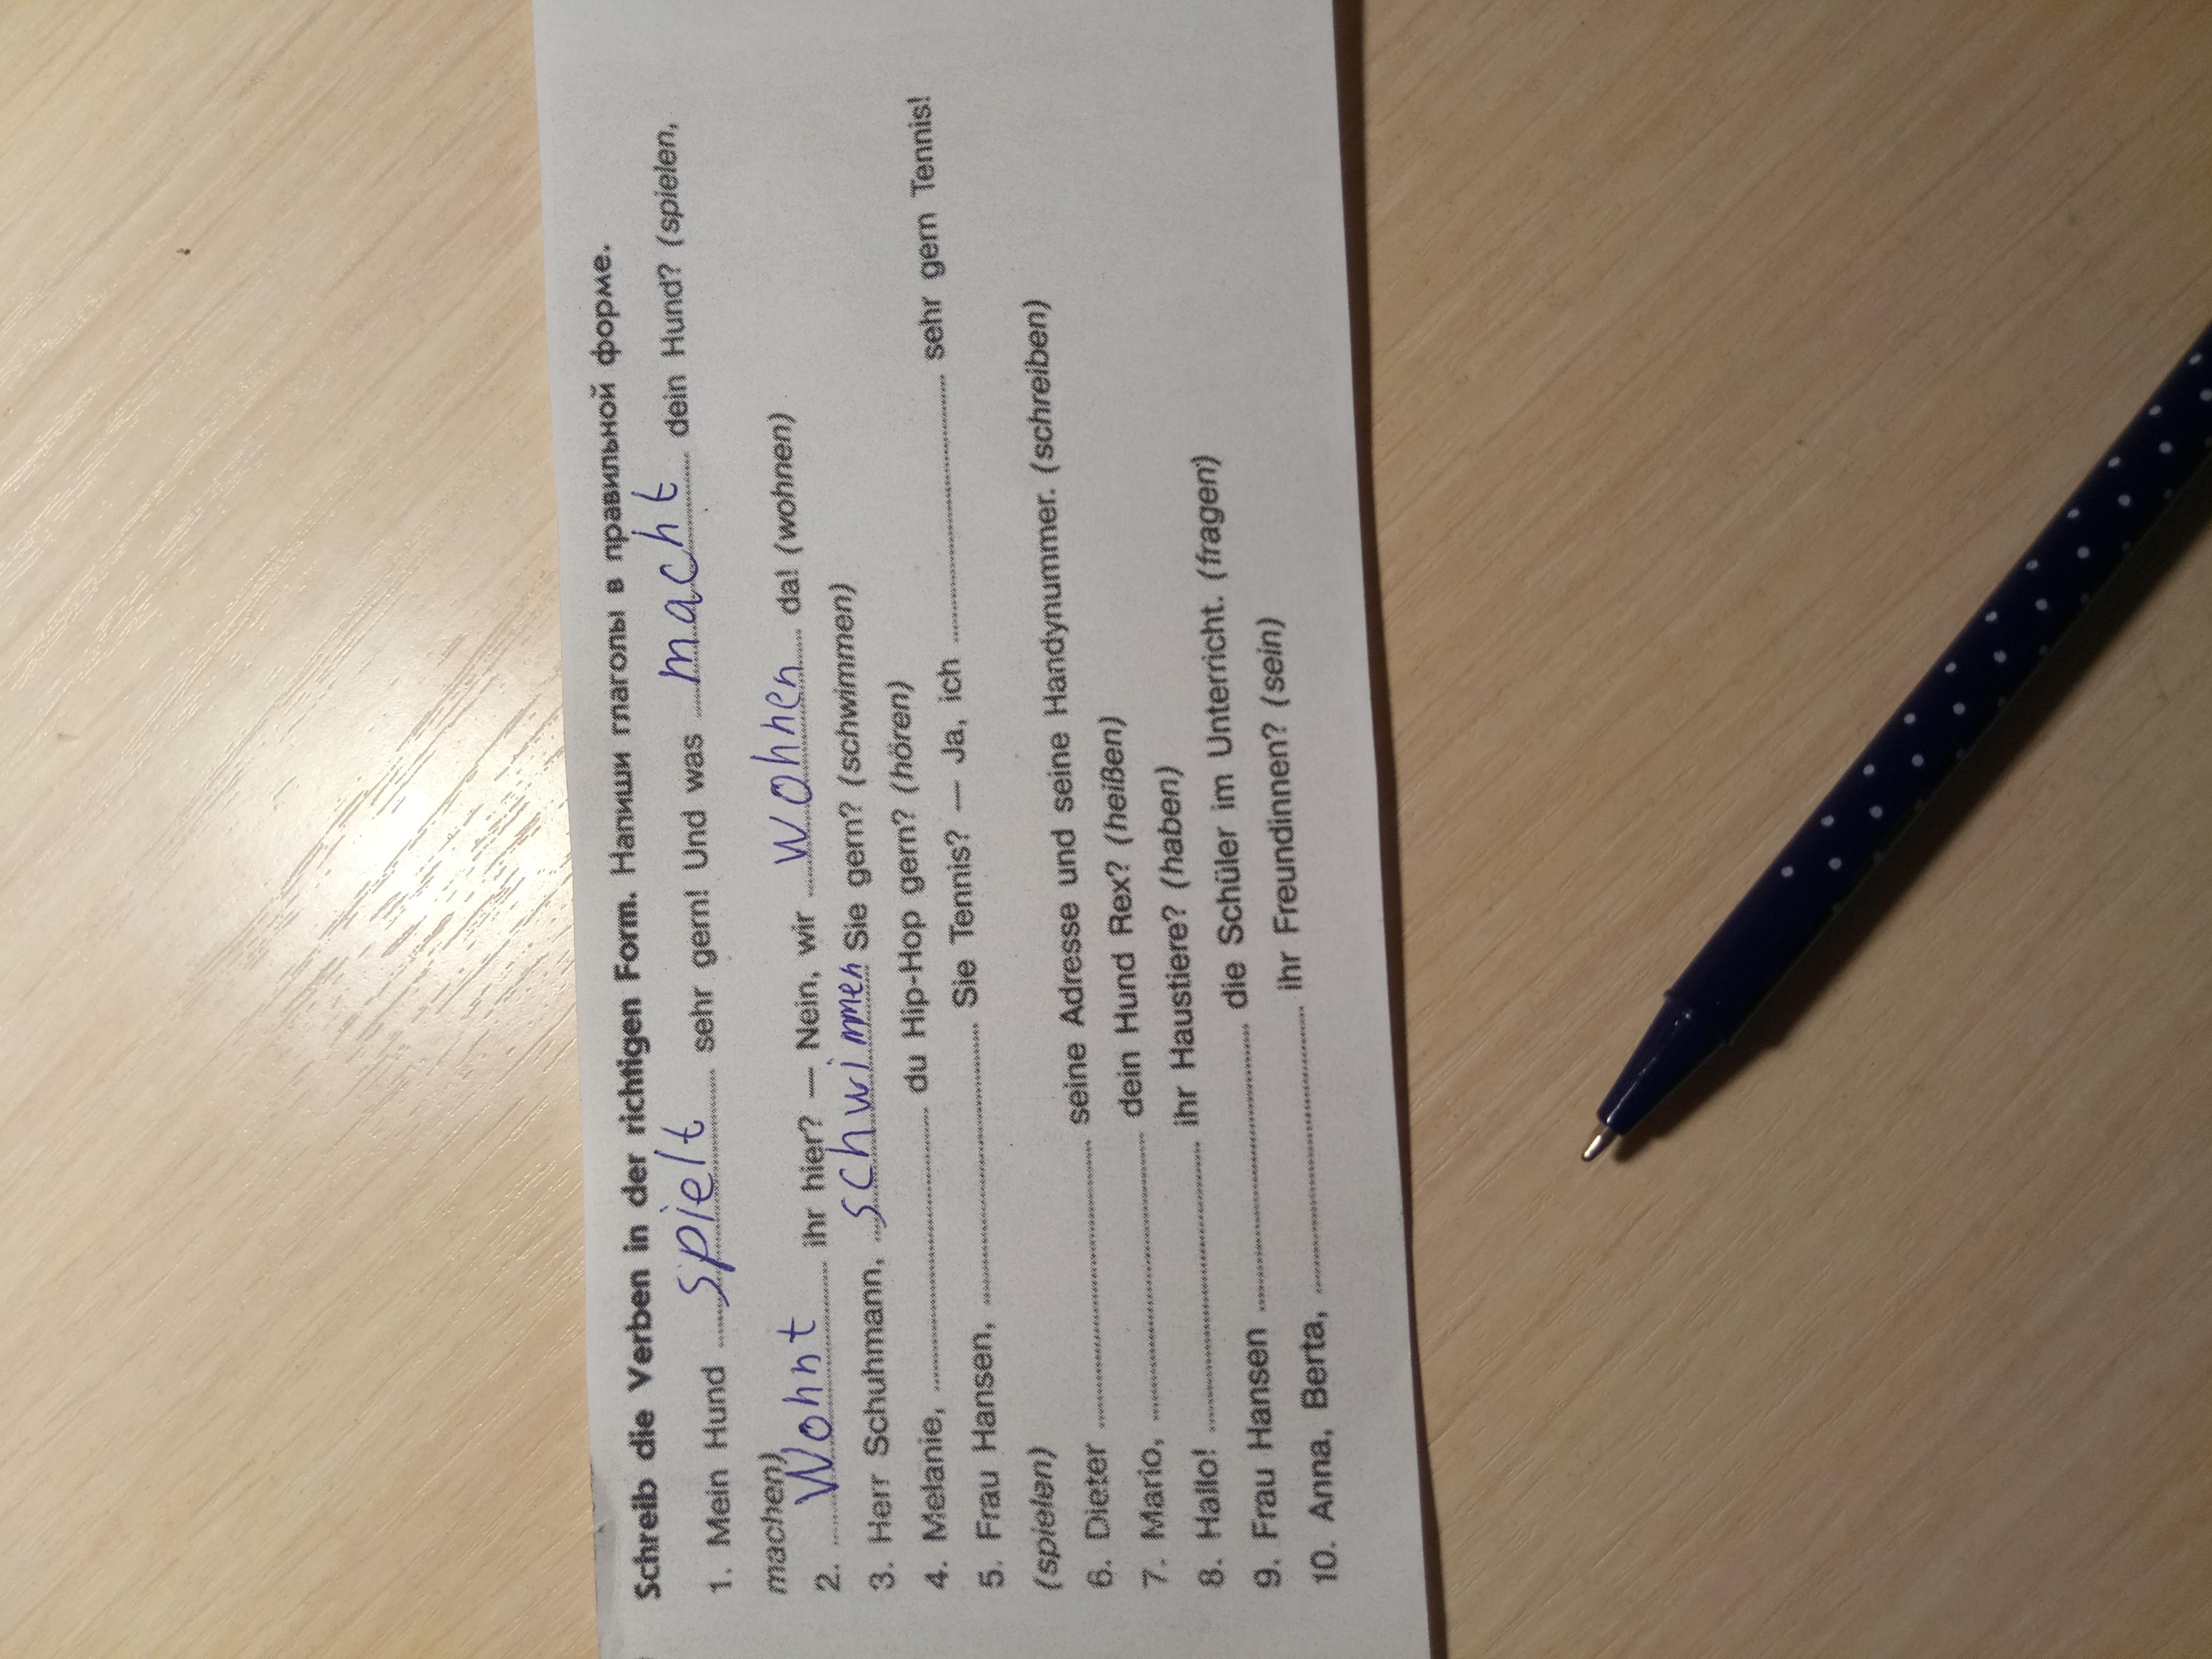 Schreib die Verben in der richtigen Form. Напиши глаголы в правильной форме.
1. Mein Hund spielt sehr gern! Und was macht dein Hund? (spielen,
machen)
2. Wohnt ihr hier? — Nein, wir wohnen da! (wohnen)
3. Herr Schuhmann, schwimmen Sie gern? (schwimmen)
4. Melanie, .......... du Hip-Hop gern? (hören)
5. Frau Hansen, .......... Sie Tennis? — Ja, ich .......... sehr gern Tennis!
(spielen)
6. Dieter .......... seine Adresse und seine Handynummer. (schreiben)
7. Mario, .......... dein Hund Rex? (heißen)
8. Hallo! .......... ihr Haustiere? (haben)
9. Frau Hansen .......... die Schüler im Unterricht. (fragen)
10. Anna, Berta, .......... ihr Freundinnen? (sein)